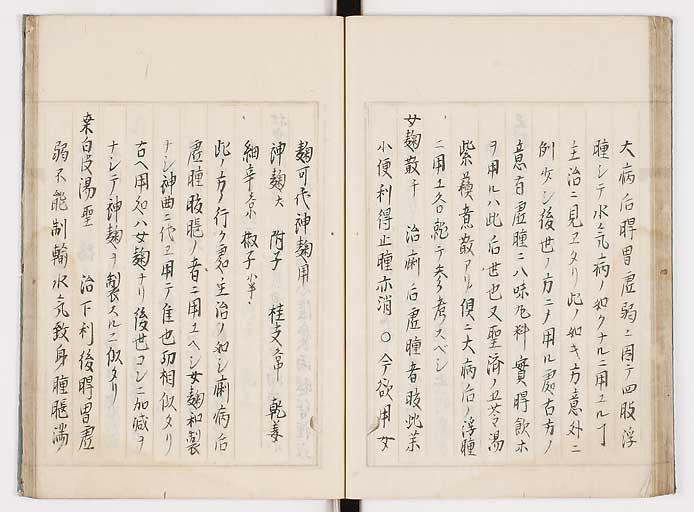 大病后脾胃虚弱ニ因テ四肢浮
腫シテ水氣病ノ如クナルニ用ユル丁
主治ニ見ヱタリ此ノ如キ方意外ニ
例少シ後世ノ方ニノ用ル處古方ノ
意有虚腫ニハ味丸料實脾飲ホ
ヲ用ルハ此后世也又聖済ノ茯苓湯
紫蘓煮散アリ俱ニ大病后ノ浮腫
ニ用ユ各就テ考スベシ
女麹散千 治痢后虚腫者服此
小便利得止腫亦消〇今欲用女
麹可代神麹用
神麹大 附子 桂支常 乾姜
細辛 椒子小半
此ノ方ノ行ク處主治ノ如シ痢病后
虚腫服脹ノ者ニ用ユヘシ女麹和製
ナシ神曲ニ代ヱ用テ佳也功相似タリ
古ヘ用紀ハ女麹ナリ後世コレニ加减ヲ
ナシテ神麹ヲ製スルニ似タリ
桒白皮湯聖 治下利後脾胃虚
弱不能制輸水氣致身腫脹満